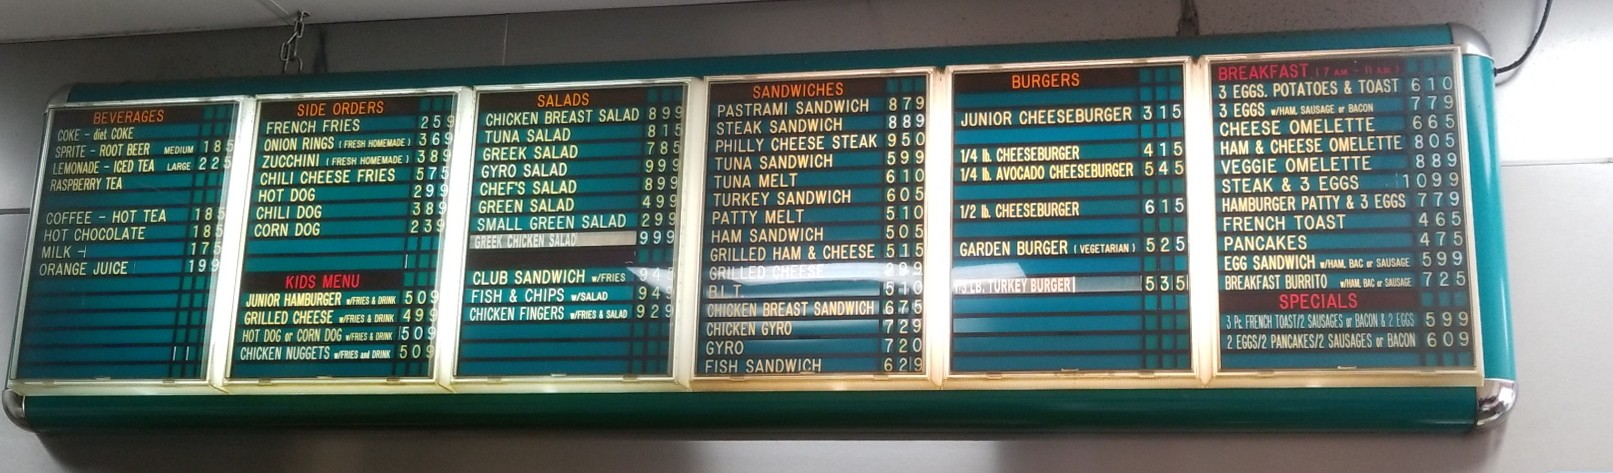 BEVERAGES
COKE - diet COKE
SPRITE - ROOT BEER MEDIUM 185
LEMONADE - ICED TEA LARGE 225
RASPBERRY TEA
COFFEE - HOT TEA 185
HOT CHOCOLATE 185
MILK 175
ORANGE JUICE 199
SIDE ORDERS
FRENCH FRIES 259
ONION RINGS (FRESH HOMEMADE) 369
ZUCCHINI (FRESH HOMEMADE) 389
CHILI CHEESE FRIES 575
HOT DOG 299
CHILI DOG 389
CORN DOG 239
KIDS MENU
JUNIOR HAMBURGER W/FRIES & DRINK 509
GRILLED CHEESE W/FRIES & DRINK 499
HOT DOG or CORN DOG W/FRIES & DRINK 509
CHICKEN NUGGETS W/FRIES and DRINK 509
SALADS
CHICKEN BREAST SALAD 899
TUNA SALAD 815
GREEK SALAD 785
GYRO SALAD 999
CHEF'S SALAD 899
GREEN SALAD 499
SMALL GREEN SALAD 299
GREEK CHICKEN SALAD 999
CLUB SANDWICH W/FRIES 945
FISH & CHIPS W/SALAD 949
CHICKEN FINGERS W/FRIES & SALAD 929
SANDWICHES
PASTRAMI SANDWICH 879
STEAK SANDWICH 889
PHILLY CHEESE STEAK 950
TUNA SANDWICH 599
TUNA MELT 610
TURKEY SANDWICH 605
PATTY MELT 510
HAM SANDWICH 505
GRILLED HAM & CHEESE 515
GRILLED CHEESE 299
B.L.T. 510
CHICKEN BREAST SANDWICH 675
CHICKEN GYRO 729
GYRO 720
FISH SANDWICH 629
BURGERS
JUNIOR CHEESEBURGER 315
1/4 lb. CHEESEBURGER 415
1/4 lb. AVOCADO CHEESEBURGER 545
1/2 lb. CHEESEBURGER 615
GARDEN BURGER (VEGETARIAN) 525
LB. TURKEY BURGER 535
BREAKFAST (7 A.M. - 11 A.M.)
3 EGGS. POTATOES & TOAST 610
3 EGGS W/HAM, SAUSAGE or BACON 779
CHEESE OMELETTE 665
HAM & CHEESE OMELETTE 805
VEGGIE OMELETTE 889
STEAK & 3 EGGS 1099
HAMBURGER PATTY & 3 EGGS 779
FRENCH TOAST 465
PANCAKES 475
EGG SANDWICH W/HAM, BAC or SAUSAGE 599
BREAKFAST BURRITO W/HAM, BAC or SAUSAGE 725
SPECIALS
3 Pc FRENCH TOAST/2 SAUSAGES or BACON & 2 EGGS 599
2 EGGS/2 PANCAKES/2 SAUSAGES or BACON 609